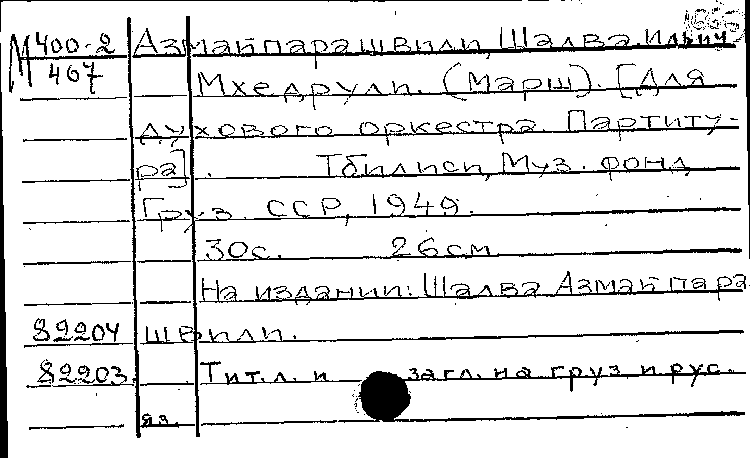 М 400-2 Азмайпарашвили, Шалва Ильич
467 Мхедрули. (Марш). [Для
духового оркестра. Партиту-
ра]. Тбилиси, Муз. фонд
Груз. ССР, 1949.
30с. 26см
На издании: Шалва Азмайпара
82204 швили.
82203 Тит.л. и загл. на груз и рус.
яз.